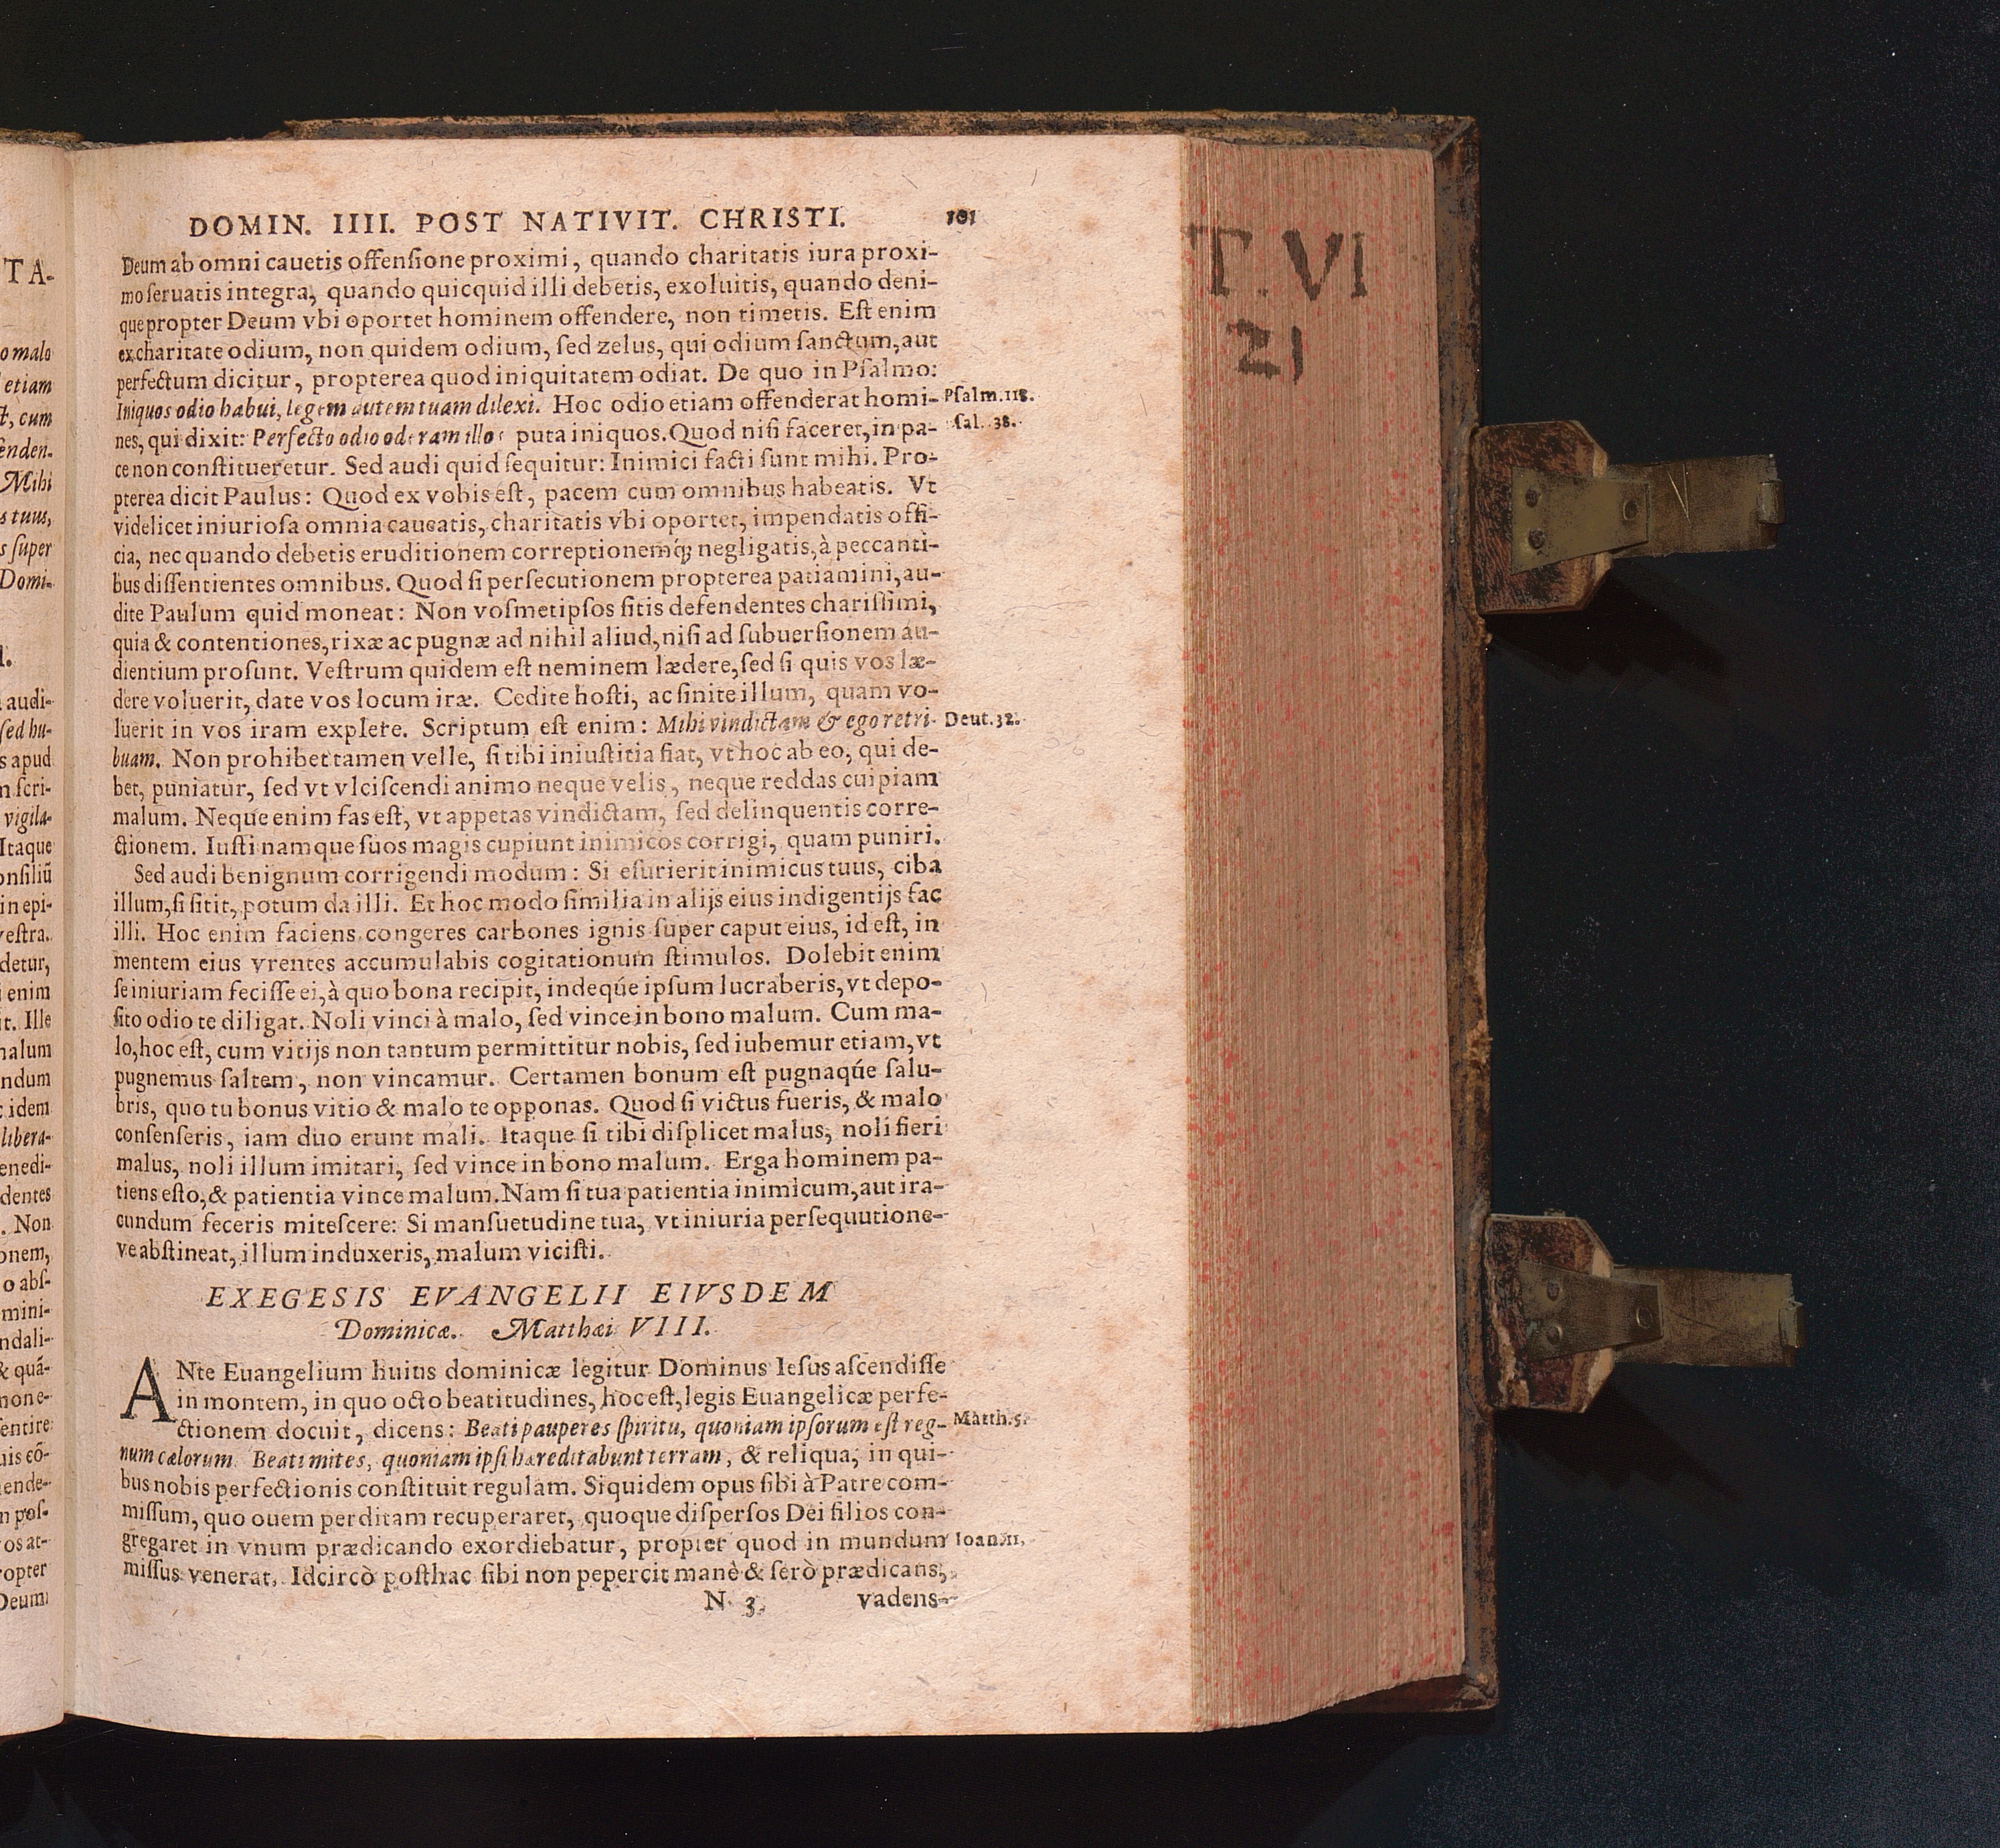 TA-
o malo
etiam
t, cum
enden.
Mihi
s tuus,
s ſuper
Domi-
audi-
ſed hu-
s apud
m ſcri-
vigila-
Itaque
onſiliũ
in epi-
veſtra.
detur,
enim
it. Ille
malum
ndum
idem
libera-
enedi-
dentes
. Non
onem,
o abſ-
mini-
ndali-
& quã-
none-
ſentire
uis cõ-
ende-
n poſ-
os at-
opter
Deum
DOMIN. IIII. POST NATIVIT. CHRISTI. 101
Deum ab omni cauetis offenſione proximi, quando charitatis iura proxi-
mo ſeruatis integra, quando quicquid illi debetis, exoluitis, quando deni-
que propter Deum vbi oportet hominem offendere, non timetis. Eſt enim
ex charitate odium, non quidem odium, ſed zelus, qui odium ſanctum, aut
perfectum dicitur, propterea quod iniquitatem odiat. De quo in Pſalmo:
Iniquos odio habui, legem autem tuam dilexi. Hoc odio etiam offenderat homi- Pſalm. 118.
nes, qui dixit: Perfecto odio oderam illos puta iniquos. Quod niſi faceret, in pa- ſal. 38.
ce non conſtitueretur. Sed audi quid ſequitur: Inimici facti ſunt mihi. Pro-
pterea dicit Paulus: Quod ex vobis eſt, pacem cum omnibus habeatis. Vt
videlicet iniurioſa omnia caueatis, charitatis vbi oportet, impendatis offi-
cia, nec quando debetis eruditionem correptionemq́; negligatis, à peccanti-
bus diſſentientes omnibus. Quod ſi perſecutionem propterea patiamini, au-
dite Paulum quid moneat: Non voſmetipſos ſitis defendentes chariſſimi,
quia & contentiones, rixæ ac pugnæ ad nihil aliud, niſi ad ſubuerſionem au-
dientium proſunt. Veſtrum quidem eſt neminem lædere, ſed ſi quis vos læ-
dere voluerit, date vos locum iræ. Cedite hoſti, ac ſinite illum, quam vo-
luerit in vos iram explere. Scriptum eſt enim: Mihi vindictam & ego retri- Deut. 32.
buam. Non prohibet tamen velle, ſi tibi iniuſtitia fiat, vt hoc ab eo, qui de-
bet, puniatur, ſed vt vlciſcendi animo neque velis, neque reddas cuipiam
malum. Neque enim fas eſt, vt appetas vindictam, ſed delinquentis corre-
ctionem. Iuſti namque ſuos magis cupiunt inimicos corrigi, quam puniri.
Sed audi benignum corrigendi modum: Si eſurierit inimicus tuus, ciba
illum, ſi ſitit, potum da illi. Et hoc modo ſimilia in alijs eius indigentijs fac
illi. Hoc enim faciens congeres carbones ignis ſuper caput eius, id eſt, in
mentem eius vrentes accumulabis cogitationum ſtimulos. Dolebit enim
ſe iniuriam feciſſe ei, à quo bona recipit, indeq́ue ipſum lucraberis, vt depo-
ſito odio te diligat. Noli vinci à malo, ſed vince in bono malum. Cum ma-
lo, hoc eſt, cum vitijs non tantum permittitur nobis, ſed iubemur etiam, vt
pugnemus ſaltem, non vincamur. Certamen bonum eſt pugnaq́ue ſalu-
bris, quo tu bonus vitio & malo te opponas. Quod ſi victus fueris, & malo
conſenſeris, iam duo erunt mali. Itaque ſi tibi diſplicet malus, noli fieri
malus, noli illum imitari, ſed vince in bono malum. Erga hominem pa-
tiens eſto, & patientia vince malum. Nam ſi tua patientia inimicum, aut ira-
cundum feceris miteſcere: Si manſuetudine tua, vt iniuria perſequutione-
ve abſtineat, illum induxeris, malum viciſti.
EXEGESIS EVANGELII EIVSDEM
Dominicæ. Matthæi VIII.
ANte Euangelium huius dominicæ legitur Dominus Ieſus aſcendiſſe
in montem, in quo octo beatitudines, hoc eſt, legis Euangelicæ perfe-
ctionem docuit, dicens: Beati pauperes ſpiritu, quoniam ipſorum eſt reg- Matth. 5.
num cælorum. Beati mites, quoniam ipſi hæreditabunt terram, & reliqua, in qui-
bus nobis perfectionis conſtituit regulam. Siquidem opus ſibi à Patre com-
miſſum, quo ouem perditam recuperaret, quoque diſperſos Dei filios con-
gregaret in vnum prædicando exordiebatur, propter quod in mundum Ioan. 11.
miſſus venerat. Idcircò poſthac ſibi non pepercit manè & ſerò prædicans,
N 3 vadens-
T. VI
21